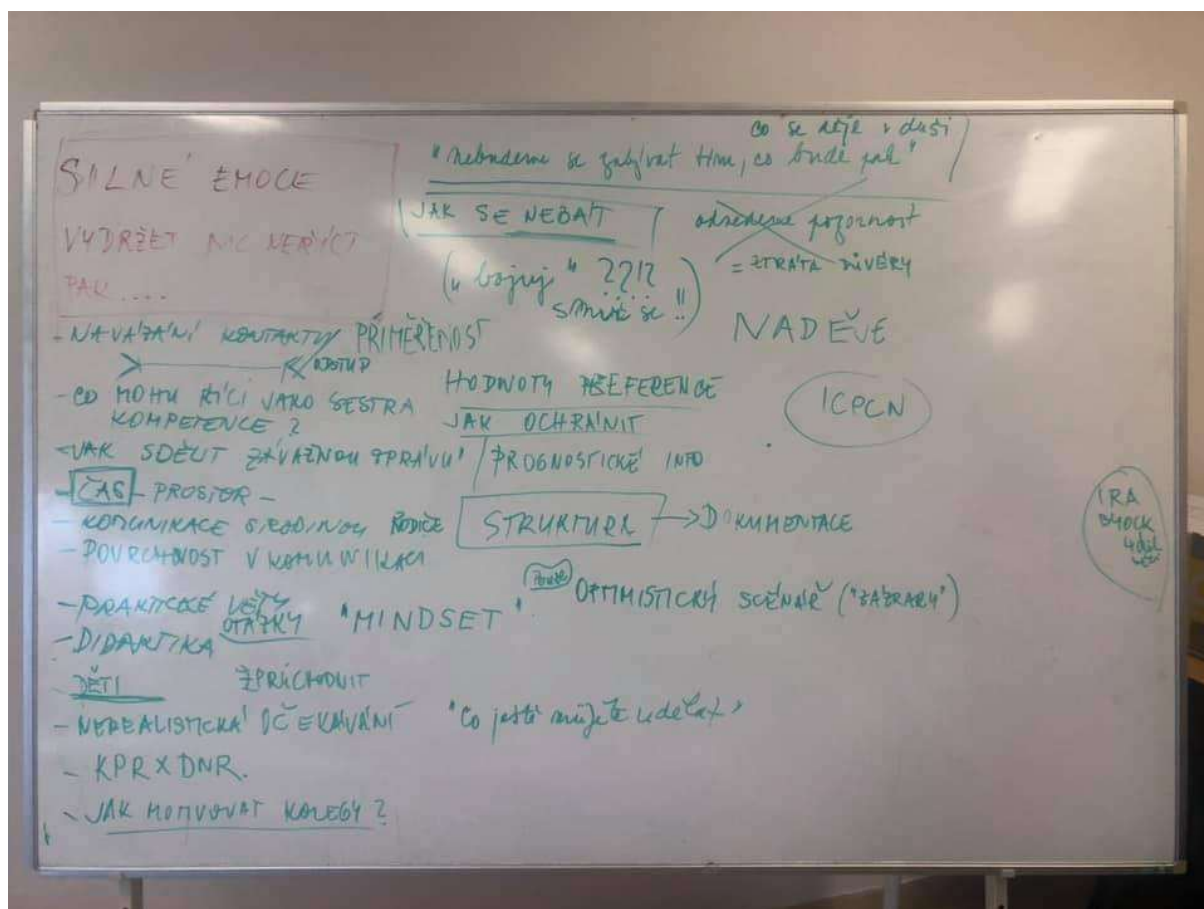 SILNÉ EMOCE
VYDRŽET NIC NEŘÍCT
PAK ....
co se děje v duši
"Nebudeme se zabývat tím, co bude pak"
JAK SE NEBÁT
odvedeme pozornost
= ZTRÁTA DŮVĚRY
(„bojuj" ??!?
smiř se !!)
NADĚJE
- NAVÁZÁNÍ KONTAKTU PŘIMĚŘENOST
ODSTUP
- CO MOHU ŘÍCI JAKO SESTRA
KOMPETENCE ?
HODNOTY PREFERENCE
JAK OCHRÁNIT
ICPCN
- JAK SDĚLIT ZÁVAŽNOU ZPRÁVU / PROGNOSTICKÉ INFO
- ČAS - PROSTOR -
- KOMUNIKACE S RODINOU RODIČE
STRUKTURA → DOKUMENTACE
- POVRCHNOST V KOMUNIKACI
IRA
BYOCK
4 důl
věci
- PRAKTICKÉ VĚTY
OTÁZKY
"MINDSET"
OPTIMISTICKÝ SCÉNÁŘ ("ZÁZRAKY")
- DIDAKTIKA
DĚTI ZPRŮCHODNIT
- NEREALISTICKÁ OČEKÁVÁNÍ "Co ještě můžete udělat"
- KPR X DNR.
- JAK MOTIVOVAT KOLEGY ?